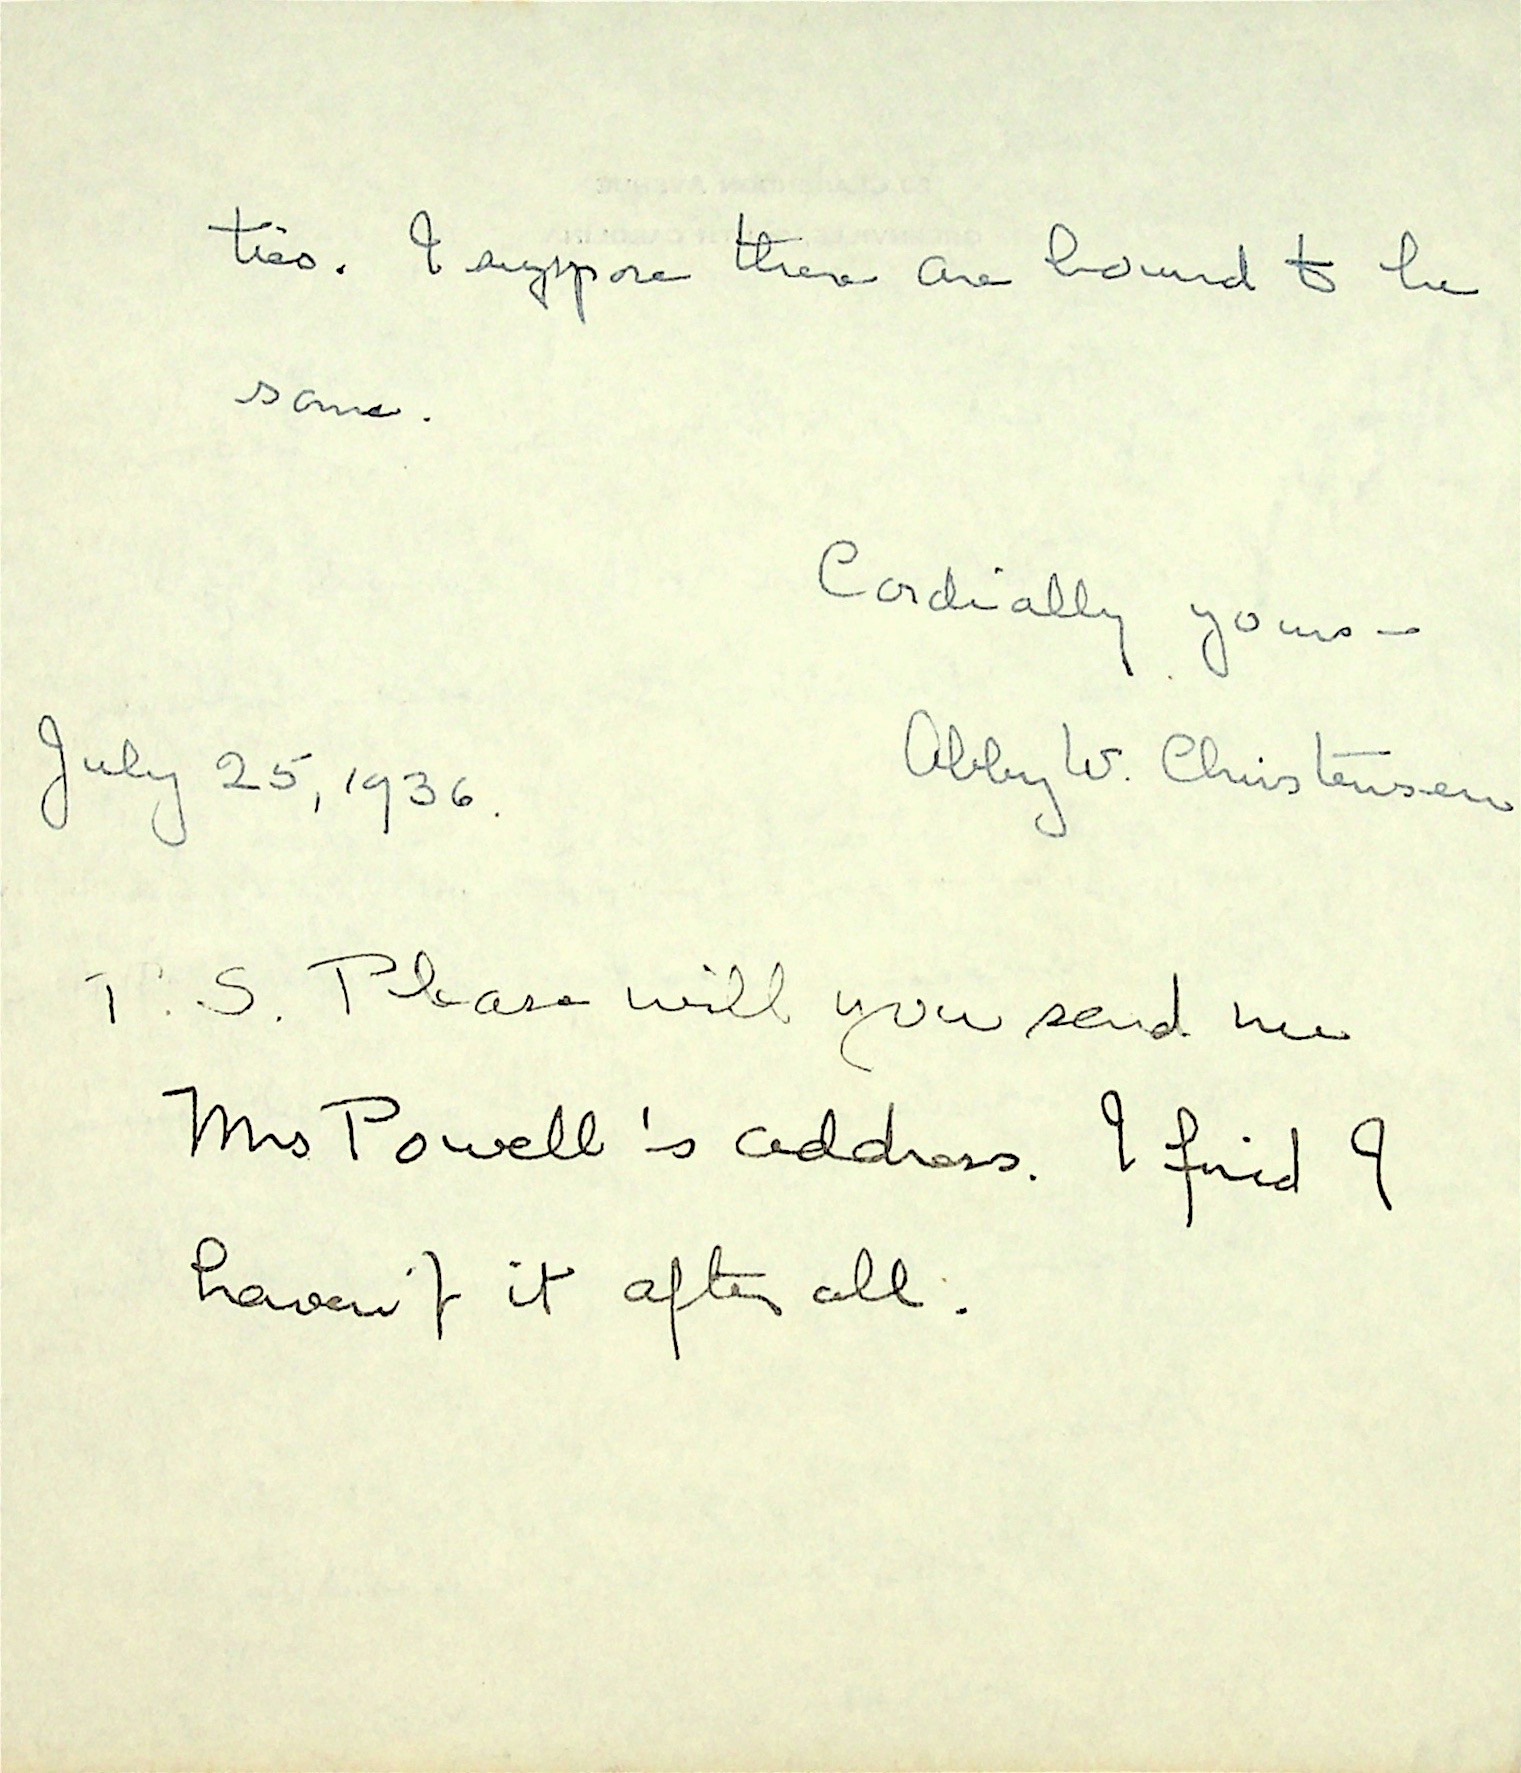 ties. I suppose there are bound to be
some.
Cordially yours -
July 25, 1936. Abby W. Christensen
P. S. Please will you send me
Mrs Powell's address. I find I
haven't it after all.